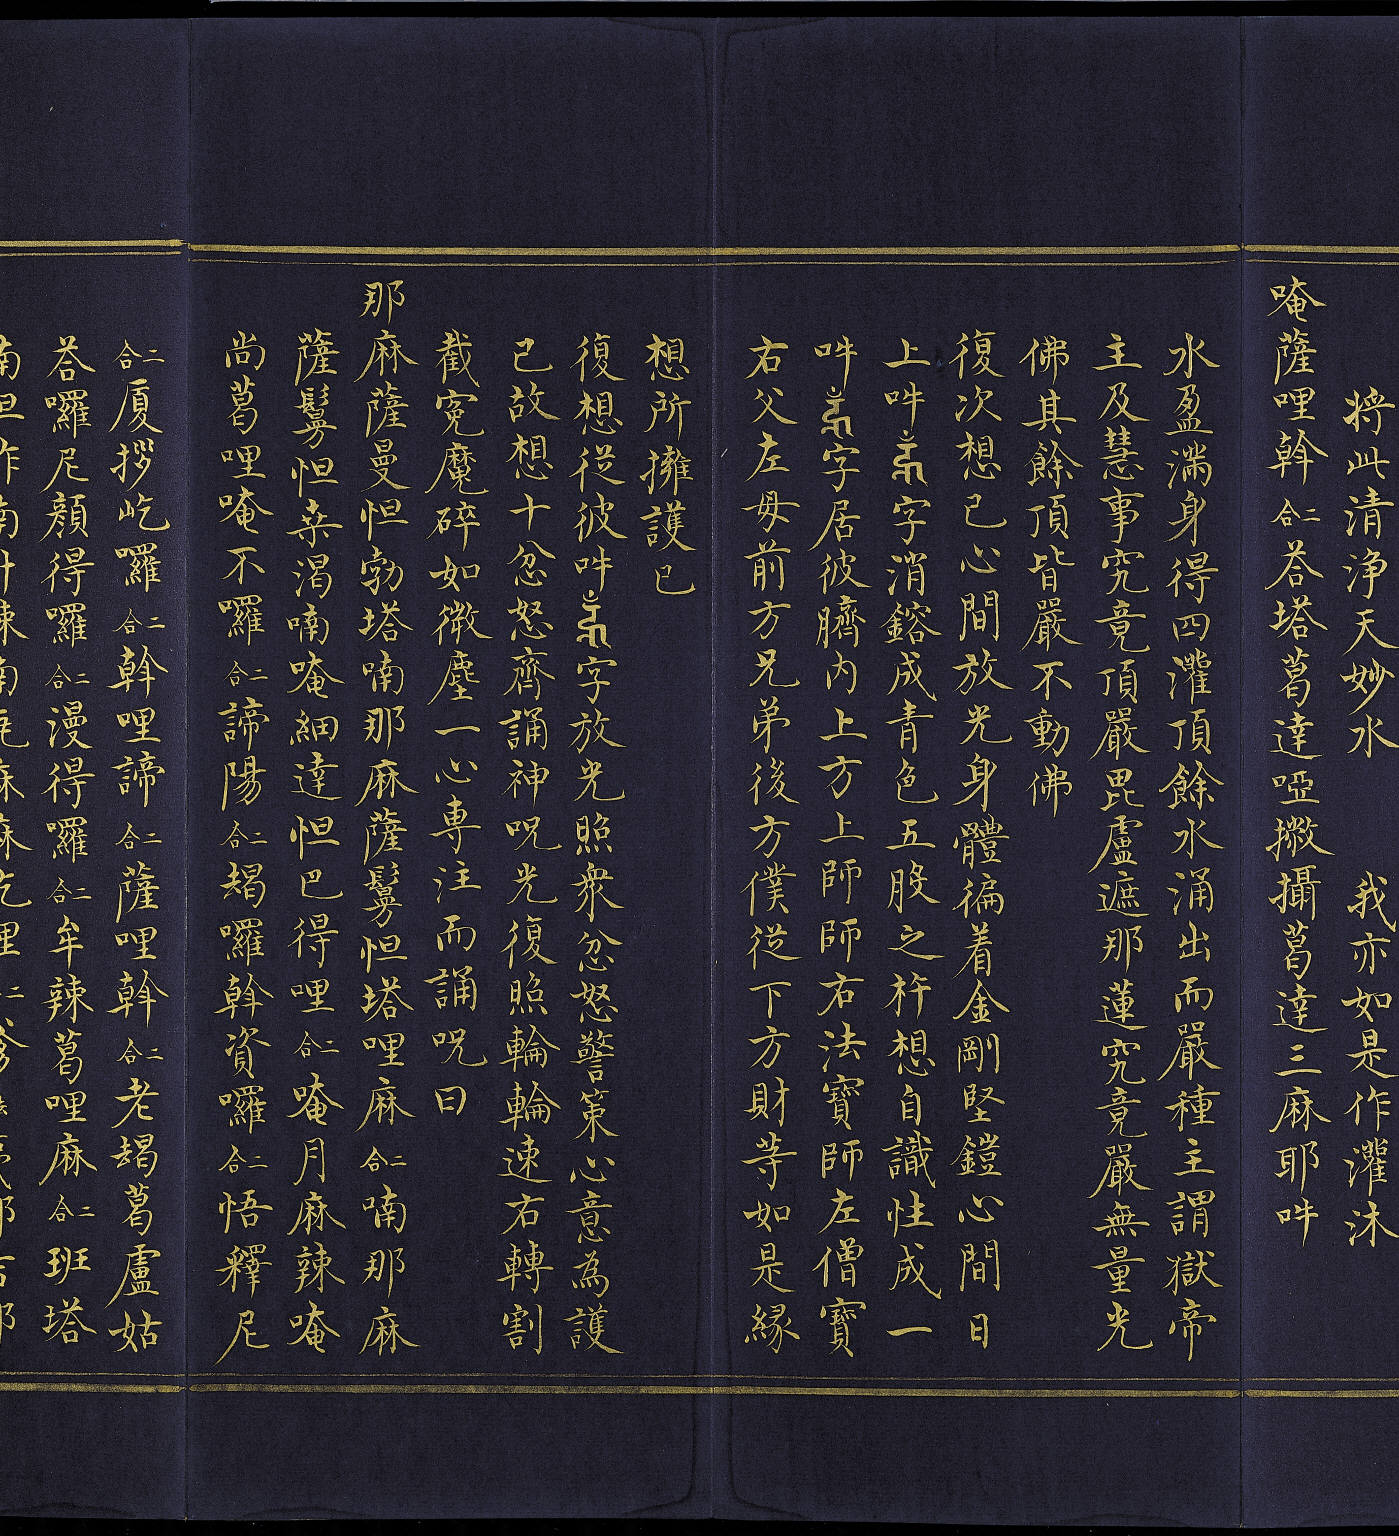 将此清淨天妙水　我亦如是作灌沐
唵薩哩斡二合荅塔葛達啞撇攝葛達三麻耶吽
水盈滿身得四灌頂餘水涌出而嚴種主謂獄帝
主及慧事究竟頂嚴毘盧遮那蓮究竟嚴無量光
佛其餘頂皆嚴不動佛
復次想已心間放光身體徧着金剛堅鎧心間日
上吽字消鎔成青色五股之杵想自識性成一
吽字居彼臍内上方上師師右法寶師左僧寶
右父左毋前方兄弟後方僕從下方財等如是緣
想所擁護已
復想從彼吽字放光照衆忿怒警策心意為護
已故想十忿怒齊誦神呪光復照輪輪速右轉割
截冤魔碎如微塵一心専注而誦呪曰
那麻薩曼怛勃塔喃那麻薩鬘怛塔哩麻二合喃那麻
薩鬘怛桒渴喃唵細達怛巴得哩二合唵月麻辣唵
尚葛哩唵不囉二合諦陽二合朅囉斡資囉二合悟釋尼
二合厦拶屹囉二合斡哩諦二合薩哩斡二合老朅葛盧姑
荅囉尼顔得囉二合漫得囉二合牟辣葛哩麻二合班塔